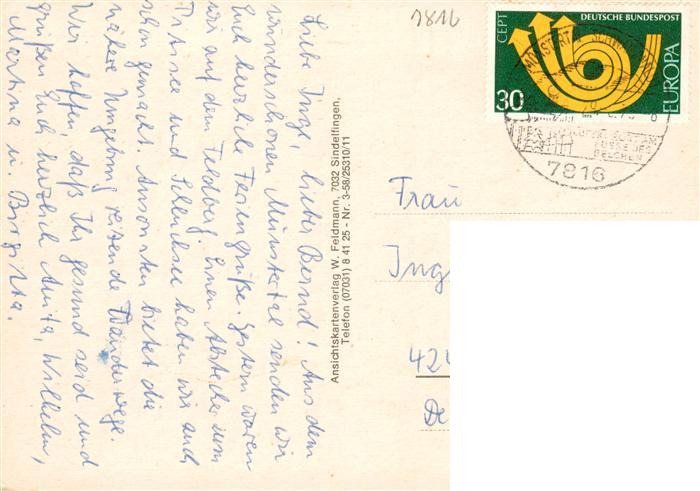 7816
CEPT
DEUTSCHE BUNDESPOST
EUROPA
30
MÜNSTERTAL SCHWARZW
FUSSE DES
BELCHEN
7816
Liebe Inge, lieber Bernd! Aus dem
wunderschönen Münstertal senden wir
Euch herzliche Feriengrüße. Gestern waren
wir auf dem Feldberg. Einen Abstecher zum
Titisee und Schluchsee haben wir auch
schon gemacht. Ansonsten bietet die
nähere Umgebung reizende Wanderwege.
Wir hoffen, daß Ihr gesund seid und
grüßen Euch herzlich Anita, Wilhelm,
Martina u. Birgitta.
Ansichtskartenverlag W. Feldmann, 7032 Sindelfingen,
Telefon (07031) 8 41 25 - Nr. 3-58/25310/11
Frau
Ing
42
De